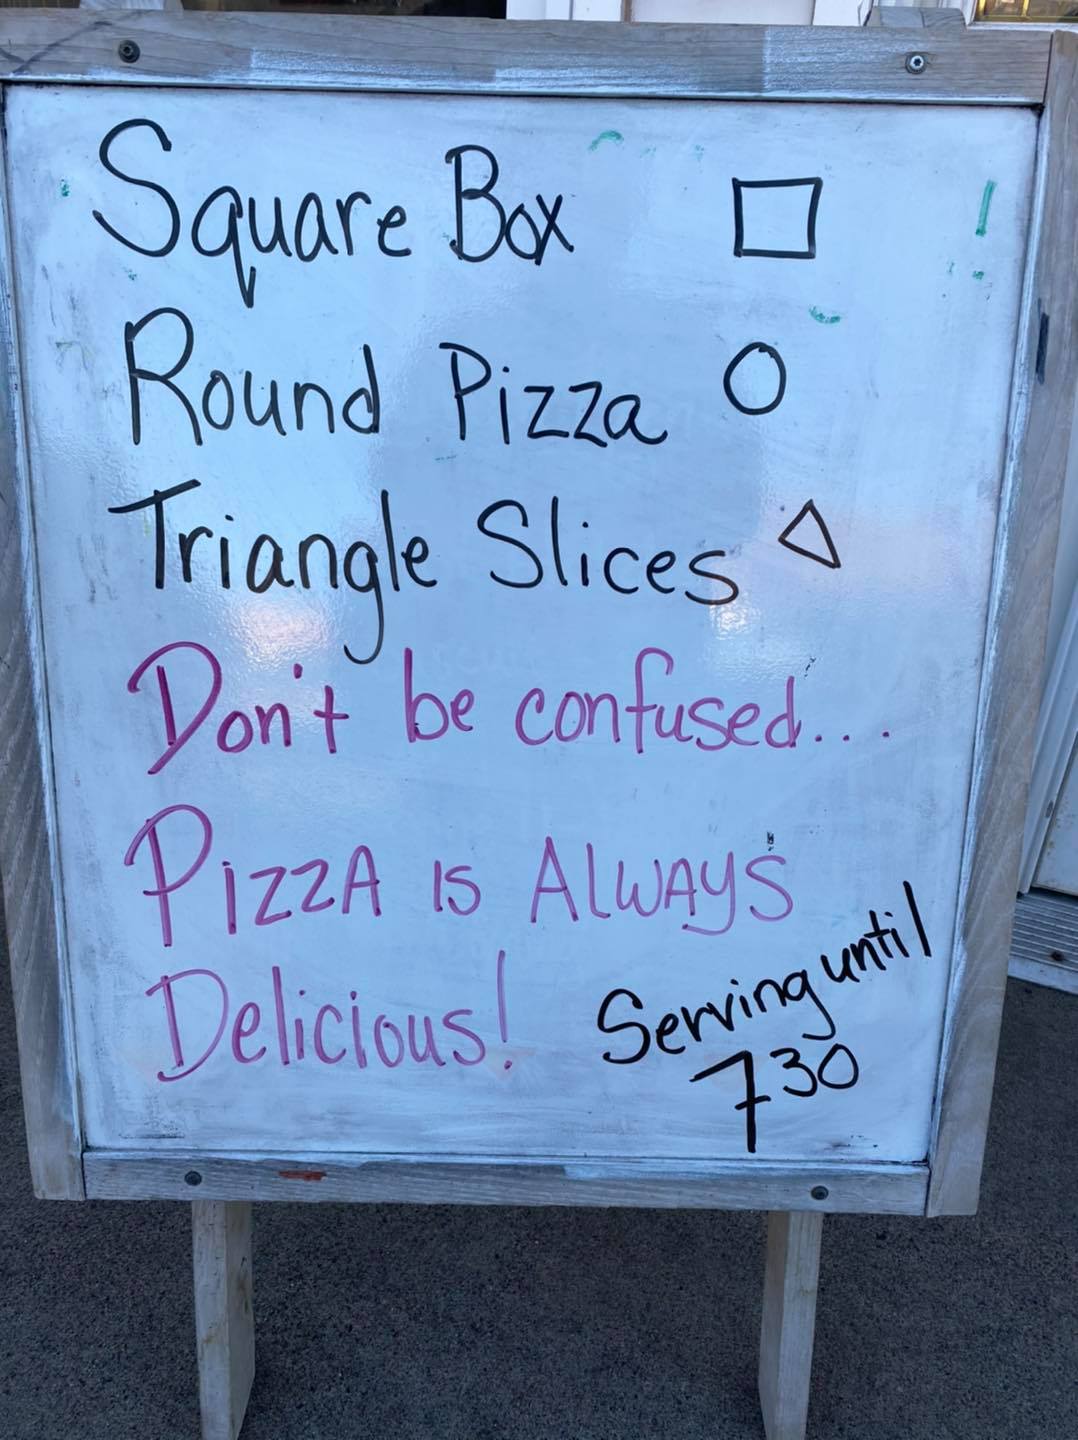 Square Box
Round Pizza
Triangle Slices
Don't be confused...
PIZZA IS ALWAYS
Delicious!
Serving until
7 30